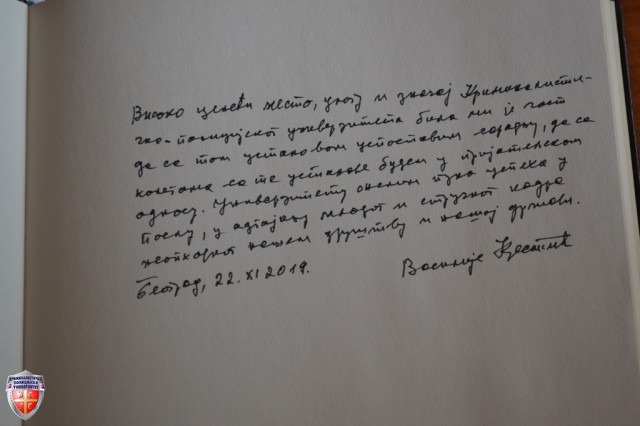 Високо ценећи место, улогу и значај Криминалисти-
чко-полицијског универзитета била ми је част
да са том установом успоставим сарадњу, да са
колегама са те установе будем у пријатељском
односу. Универзитету желим пуно успеха у
послу, у одгајању младог и стручног кадра
неопходног нашем друштву и нашој држави.
Београд, 22. XI 2019.
Василије Крестић
КРИМИНАЛИСТИЧКО
ПОЛИЦИЈСКИ
УНИВЕРЗИТЕТ